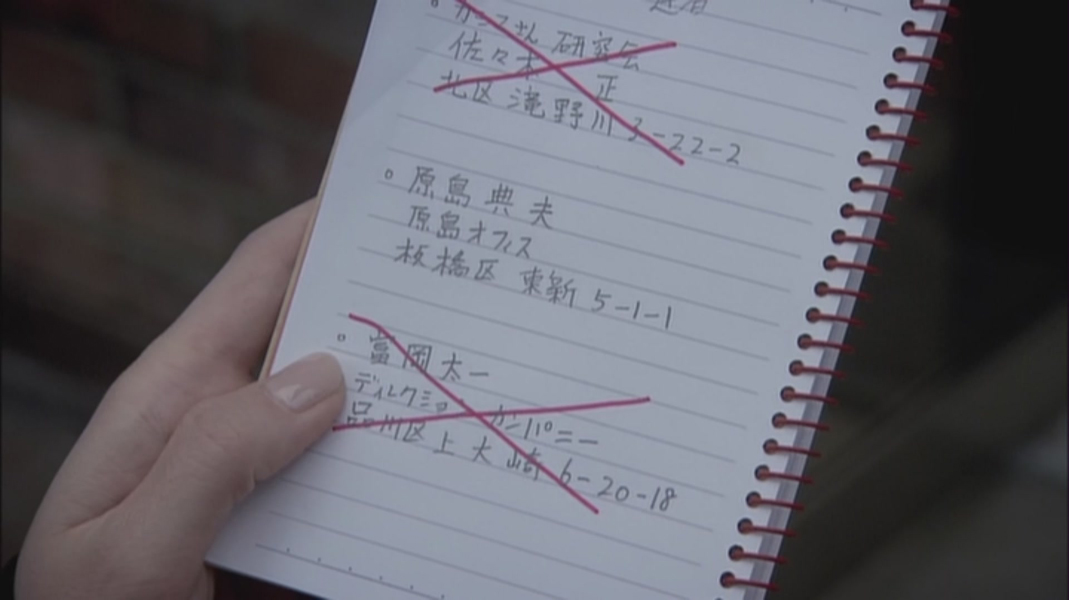 研究会
佐々木 正
北区 滝野川 3-22-2
。原島 典夫
原島オフィス
板橋区 東新 5-1-1
。富岡太一
カンパニー
品川区 上大崎 6-20-18